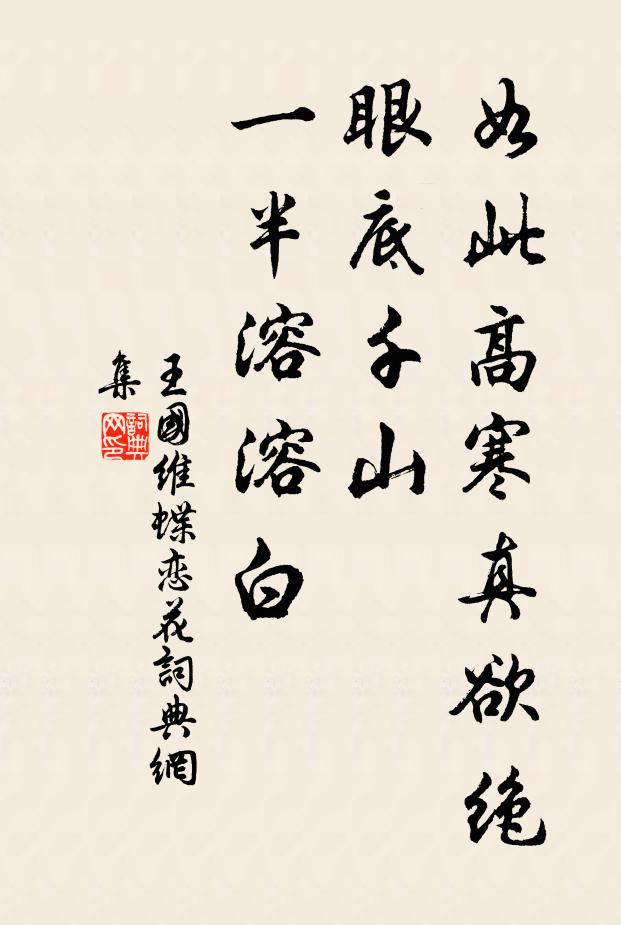 如此高寒真欲绝
眼底千山
一半溶溶白
王國維蝶恋花詞典網
集
詞典
网印